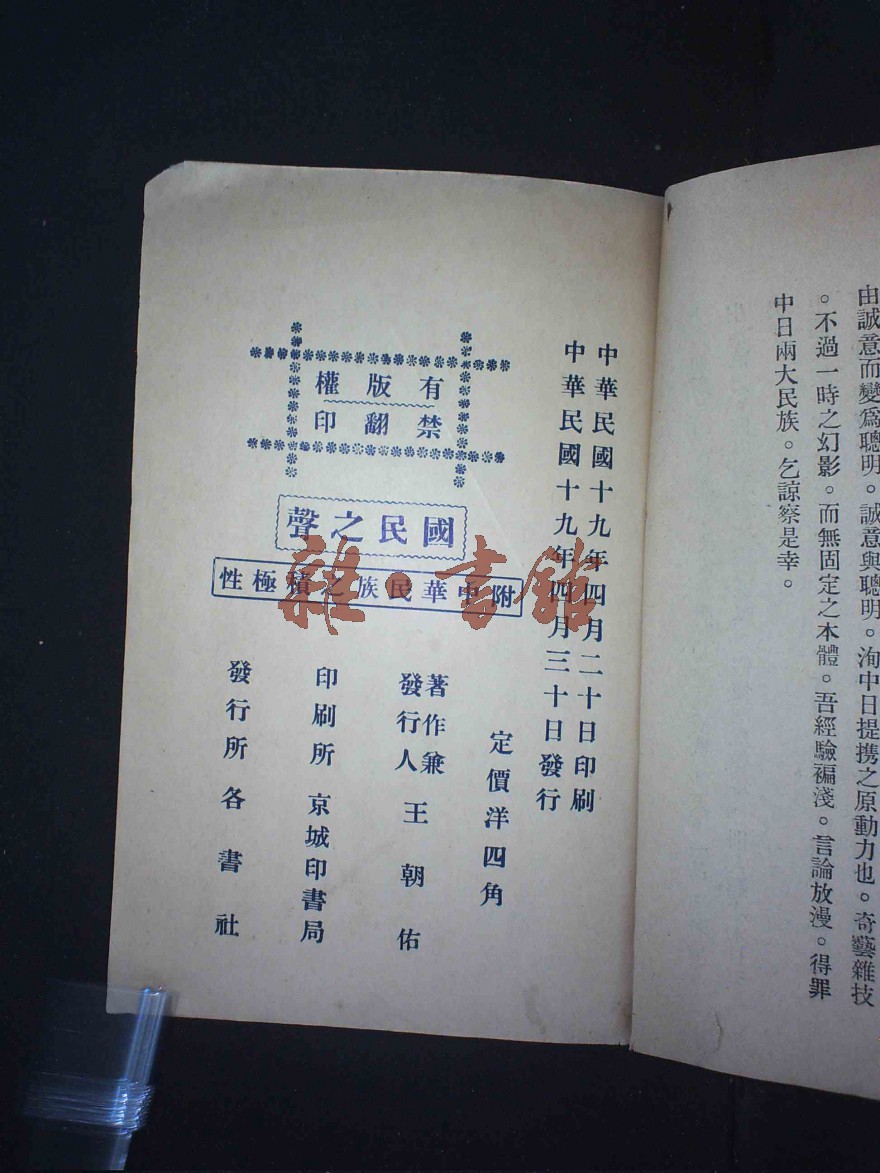 由誠意而變爲聰明。誠意與聰明。洵中日提携之原動力也。奇藝雜技
。不過一時之幻影。而無固定之本體。吾經驗褊淺。言論放漫。得罪
中日兩大民族。乞諒察是幸。
中華民國十九年四月二十日印刷
中華民國十九年四月三十日發行
有版權
禁翻印
國民之聲
附中華民族之積極性
定價洋四角
著作兼
發行人 王朝佑
印刷所 京城印書局
發行所 各書社
雜·書館